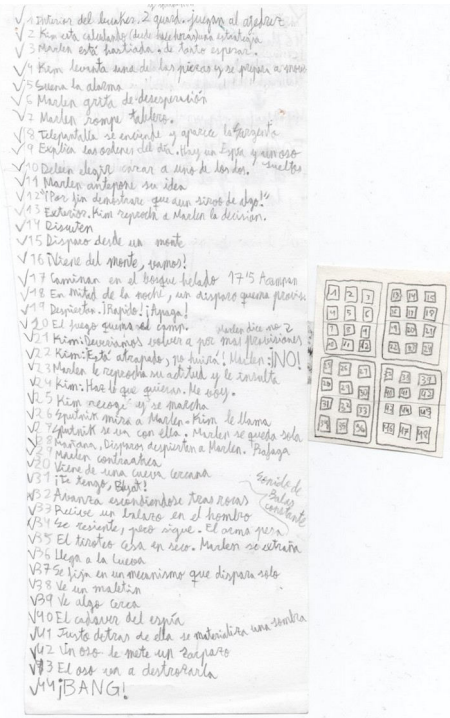 √1 Interior del bunker. 2 guard. juegan al ajedrez
√2 Kim esta calculando desde hace horas una estrategia
√3 Marlen está hastiada de tanto esperar.
√4 Kim levanta una de las piezas y se prepara a mover
√5 Suena la alarma
√6 Marlen grita de desesperación
√7 Marlen rompe tablero.
√8 Telepantalla se enciende y aparece la Sargento
√9 Explica las ordenes del día. Hay un Espía y un oso sueltos
√10 Deben elegir cazar a uno de los dos.
√11 Marlen antepone su idea
√12 "¡Por fin demostrare que aun sirvo de algo!"
√13 Exterior. Kim reprocha a Marlen la decisión.
√14 Discuten
√15 Disparo desde un monte
√16 ¡Viene del monte, vamos!
√17 Caminan en el bosque helado 17'5 Acampan
√18 En Mitad de la noche, un disparo quema provisi
√19 Despiertan. ¡Rapido! ¡Apaga!
√20 El fuego quema el camp.
√21 Kim: Deberiamos volver a por mas provisiones
Marlen dice no 2
√22 Kim: Está atrapado, no huirá! Marlen: ¡NO!
√23 Marlen le reprocha su actitud y le insulta
√24 Kim: Haz lo que quieras. Me voy.
√25 Kim recoge y se marcha
√26 Sputnik mira a Marlen. Kim le llama
√27 Sputnik se va con ella. Marlen se queda sola
√28 Mañana. Disparos despiertan a Marlen. Rafaga
√29 Marlen contraataca
√30 Viene de una cueva cercana
√31 ¡Te tengo,
√32 Avanza escondiendose tras rocas
Sonido de Balas constante
√33 Recive un balazo en el hombro
√34 Se resiente, pero sigue. El arma pesa
√35 El tiroteo cesa en seco. Marlen se extraña
√36 Llega a la Cueva
√37 Se fija en un mecanismo que dispara solo
√38 Ve un maletin
√39 Ve algo cerca
√40 El cadaver del espía
√41 Justo detras de ella se materializa una sombra
√42 Un oso le mete un zarpazo
√43 El oso va a destrozarla
√44 ¡BANG!